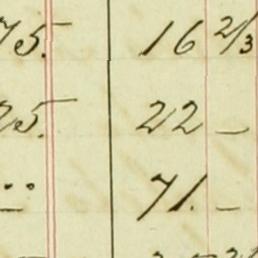 75. 16 2/3
25. 22 –
71. –